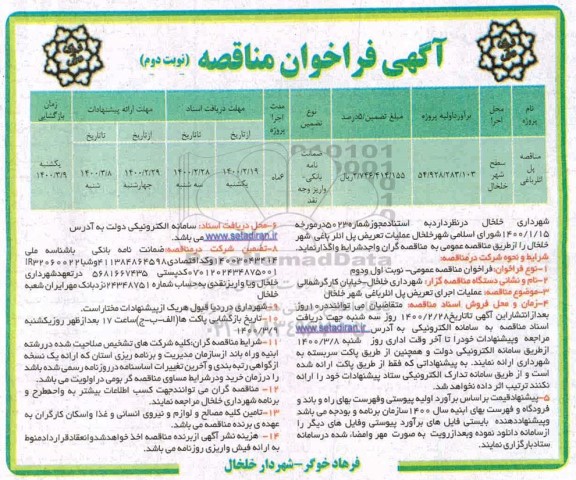 آگهی فراخوان مناقصه (نوبت دوم)
نام پروژه
محل اجرا
برآورد اولیه پروژه
مبلغ تضمین/۵درصد
نوع تضمین
مدت اجرا پروژه
مهلت دریافت اسناد
مهلت ارائه پیشنهادات
زمان بازگشایی
از تاریخ
تا تاریخ
از تاریخ
تا تاریخ
مناقصه پل انلرباغی
سطح شهر خلخال
۵۴/۹۲۸/۲۸۳/۱۰۳
۲/۷۴۶/۴۱۴/۱۵۵ریال
ضمانت نامه بانکی - واریز وجه نقد
۶ماه
۱۴۰۰/۲/۱۹ یکشنبه
۱۴۰۰/۲/۲۸ سه شنبه
۱۴۰۰/۲/۲۹ چهارشنبه
۱۴۰۰/۳/۸ شنبه
یکشنبه ۱۴۰۰/۳/۹
شهرداری خلخال درنظردارد به استناد مجوز شماره ۵۰۲۳ مورخه
۱۴۰۰/۱/۱۵ شورای اسلامی شهر خلخال عملیات تعریض پل انلر باغی شهر
خلخال را از طریق مناقصه عمومی به مناقصه گران واجد شرایط واگذار نماید.
شرایط و نحوه شرکت در مناقصه:
۱-نوع فراخوان: فراخوان مناقصه عمومی- نوبت اول و دوم
۲-نام و نشانی دستگاه مناقصه گزار: شهرداری خلخال-خیابان کارگر شمالی
۳-موضوع مناقصه: عملیات اجرای تعریض پل انلرباغی شهر خلخال
۴-زمان و محل فروش اسناد مناقصه: متقاضیان می توانند ۱۰ روز
بعد از انتشار این آگهی تا تاریخ ۱۴۰۰/۲/۲۸ روز سه شنبه جهت دریافت
اسناد مناقصه به سامانه الکترونیکی به آدرس www.setadiran.ir
مراجعه و پیشنهادات خود را تا آخر وقت اداری روز شنبه ۱۴۰۰/۳/۸
از طریق سامانه الکترونیکی دولت و همچنین از طریق پاکت سربسته به
شهرداری ارائه نمایند. به پیشنهاداتی که فقط از طریق پاکت ارائه شده
است و از طریق سامانه تدارک الکترونیکی ستاد پیشنهادات خود را ارائه
نکنند ترتیب اثر داده نخواهد شد.
۵-پیشنهاد قیمت بر اساس برآورد اولیه پیوستی و فهرست بهای راه و باند و
فرودگاه و فهرست بهای ابنیه سال ۱۴۰۰ سازمان برنامه و بودجه می باشد
و پیشنهاد دهنده بایستی فایل های برآورد پیوستی و فایل های دیگر را
از سامانه دانلود نموده و بعد از رویت به صورت مهر و امضا شده در سامانه
ستاد بارگزاری نمایند.
۶-محل دریافت اسناد: سامانه الکترونیکی دولت به آدرس
www.setadiran.ir می باشد.
۸-تضمین شرکت در مناقصه: ضمانت نامه بانکی باشناسه ملی
خلخال و یا واریز نقدی به حساب شماره ۲۴۳۴۸۷۵۱ نزد بانک مهر ایران شعبه
خلخال
۹-شهرداری در رد یا قبول هریک از پیشنهادات مختار است.
۱۰-تاریخ بازگشایی پاکت ها(الف-ب-ج)ساعت ۱۷ بعد از ظهر روز یکشنبه
۱۴۰۰/۳/۹
۱۱-شرایط مناقصه گران: کلیه شرکت های تشخیص صلاحیت شده در رشته
ابنیه و راه باند از سازمان مدیریت و برنامه ریزی استان که ارائه یک نسخه
از گواهی رتبه بندی و آخرین تغییرات اساسنامه در روزنامه رسمی شده باشد
را در زمان خرید و در شرایط مساوی مناقصه گر بومی در اولویت می باشد.
۱۲- مناقصه گران می توانند جهت کسب اطلاعات بیشتر به واحد طرح و
برنامه شهرداری خلخال مراجعه نمایند.
۱۳-تامین کلیه مصالح و لوازم و نیروی انسانی و غذا و اسکان کارگران به
عهده ی برنده مناقصه می باشد.
۱۴- هزینه نشر آگهی از برنده مناقصه اخذ خواهد شد و انعقاد قرارداد منوط
به ارائه فیش واریزی روزنامه می باشد.
فرهاد خوگر-شهردار خلخال